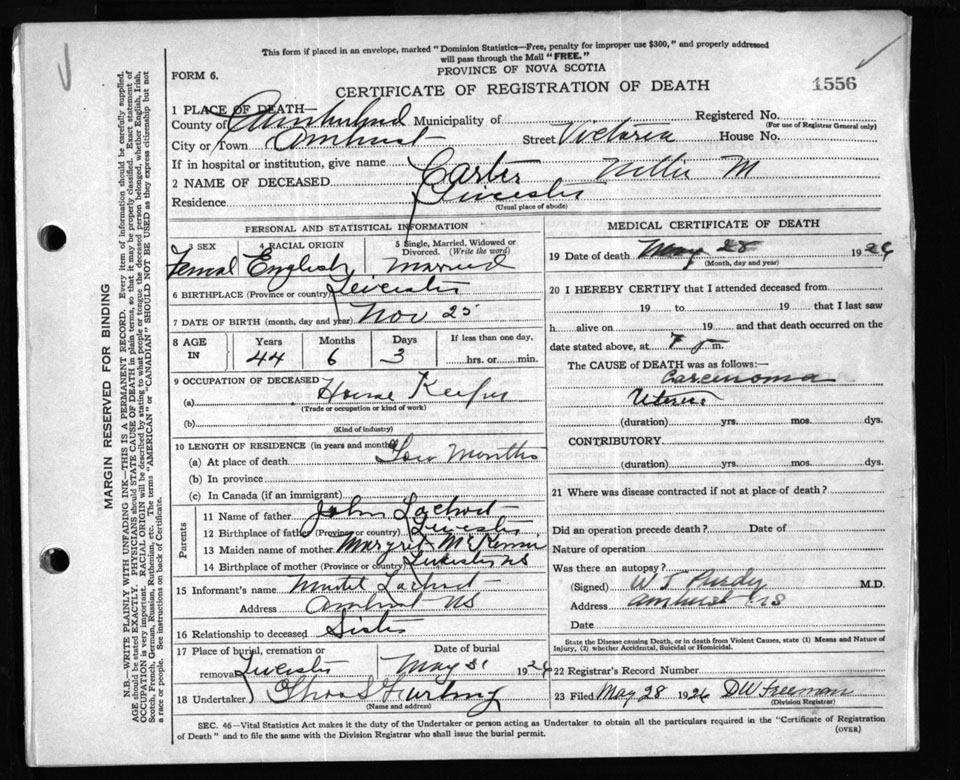 This form if placed in an envelope, marked "Dominion Statistics—Free, penalty for improper use $300," and properly addressed
will pass through the Mail "FREE."
PROVINCE OF NOVA SCOTIA
FORM 6.
CERTIFICATE OF REGISTRATION OF DEATH
1556
1 PLACE OF DEATH—
County of Cumberland Municipality of Registered No.
(For use of Registrar General only)
City or Town Amherst Street Victoria House No.
If in hospital or institution, give name
2 NAME OF DECEASED Carter Nellie M
Residence Leicester
(Usual place of abode)
PERSONAL AND STATISTICAL INFORMATION
3 SEX 4 RACIAL ORIGIN 5 Single, Married, Widowed or Divorced. (Write the word)
Femal English Married
6 BIRTHPLACE (Province or country) Leicester
7 DATE OF BIRTH (month, day and year) Nov 25
8 AGE IN Years Months Days If less than one day.
44 6 3 hrs. or min.
9 OCCUPATION OF DECEASED
(a) House Keeper
(Trade or occupation or kind of work)
(b)
(Kind of industry)
10 LENGTH OF RESIDENCE (in years and months)
(a) At place of death Months
(b) In province
(c) In Canada (if an immigrant)
Parents
11 Name of father John
12 Birthplace of father (Province or country) Leicester
13 Maiden name of mother
14 Birthplace of mother (Province or country) Leicester NS
15 Informant's name
Address Amherst NS
16 Relationship to deceased Sister
17 Place of burial, cremation or removal Leicester
Date of burial May 31 1926
18 Undertaker
(Name and address)
MEDICAL CERTIFICATE OF DEATH
19 Date of death May 28 1926
(Month, day and year)
20 I HEREBY CERTIFY that I attended deceased from
19 to 19 that I last saw
h alive on 19 and that death occurred on the
date stated above, at m.
The CAUSE OF DEATH was as follows:—
Carcinoma
Uterus
(duration) yrs. mos. dys.
CONTRIBUTORY
(duration) yrs. mos. dys.
21 Where was disease contracted if not at place of death?
Did an operation precede death? Date of
Nature of operation
Was there an autopsy?
(Signed) W T Purdy M.D.
Address Amherst NS
Date
State the Disease causing Death, or in death from Violent Causes, state (1) Means and Nature of
Injury, (2) whether Accidental, Suicidal or Homicidal.
22 Registrar's Record Number
23 Filed May 28 1926 D W Freeman
(Division Registrar)
SEC. 46—Vital Statistics Act makes it the duty of the Undertaker or person acting as Undertaker to obtain all the particulars required in the "Certificate of Registration
of Death" and to file the same with the Division Registrar who shall issue the burial permit.
(OVER)
MARGIN RESERVED FOR BINDING
N.B.—WRITE PLAINLY WITH UNFADING INK—THIS IS A PERMANENT RECORD. Every item of information should be carefully supplied.
AGE should be stated EXACTLY. PHYSICIANS should STATE CAUSE OF DEATH in plain terms, so that it may be properly classified. Exact statement of
OCCUPATION is very important. RACIAL ORIGIN will be described by stating to what people or tongue the deceased person belonged, whether English, Irish,
Scotch, French, German, Russian, Ruthenian, etc. The terms "AMERICAN" or "CANADIAN" SHOULD NOT BE USED as they express citizenship but not
a race or people. See instructions on back of Certificate.